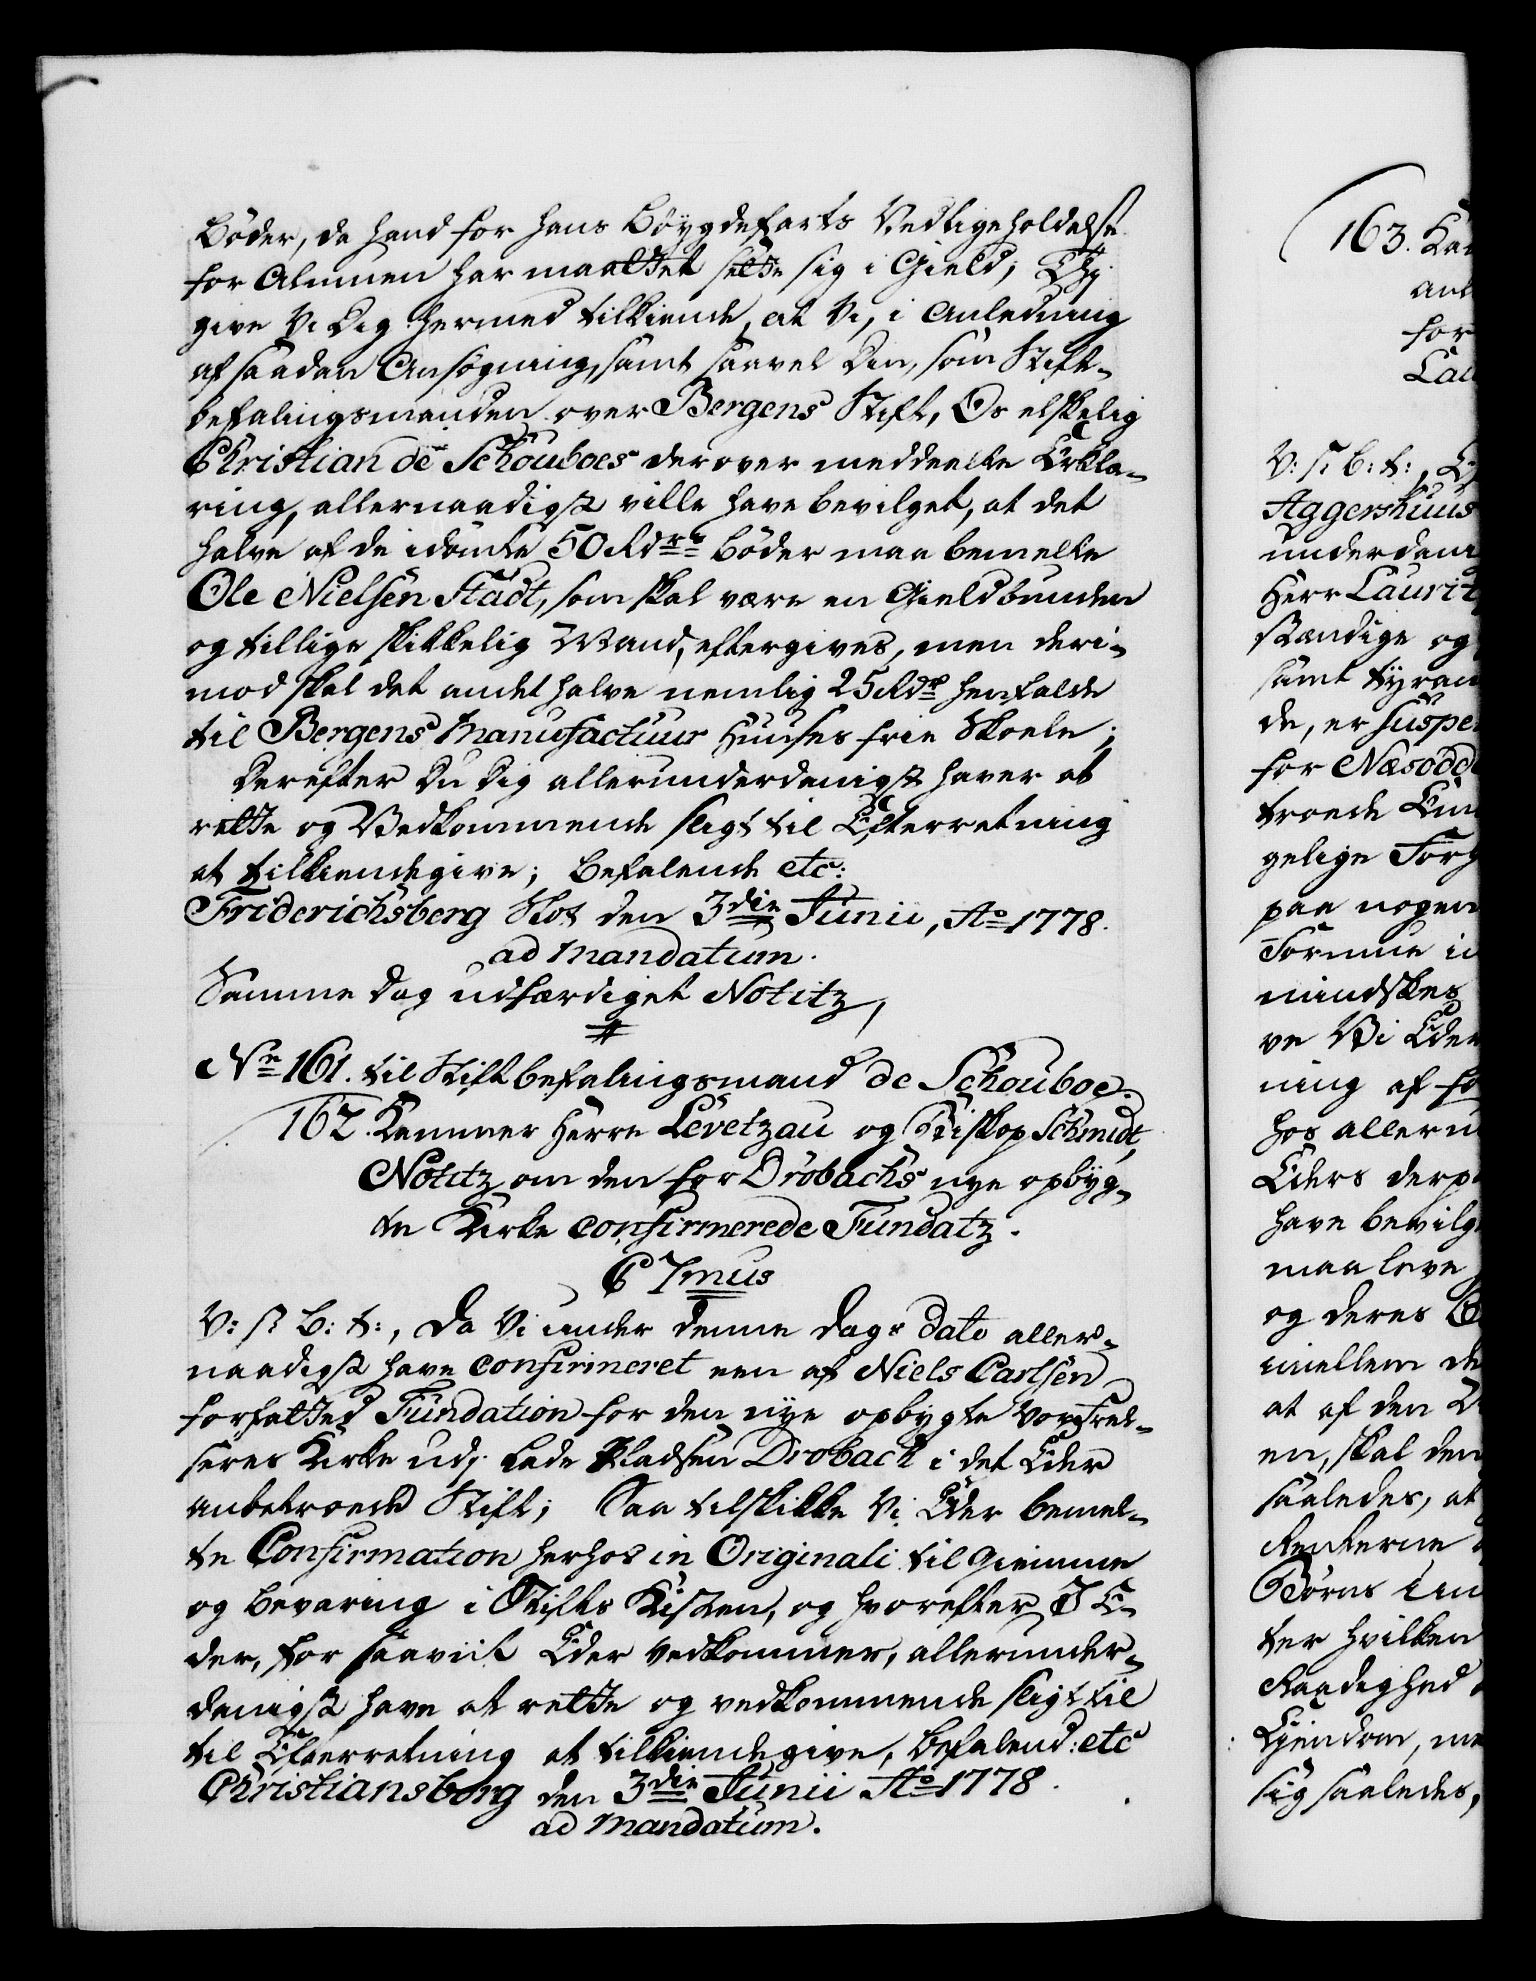 Bøder, da hand for hans Böygdefarts Vedligeholdelse
for Almuen har maattet sette sig i Gield; Thj
give Vi Dig hermed tilkiende, at Vi, i Anledning
af saadan Ansøgning, samt saavel Din, som Stift-
befalingsmanden over Bergens Stift, Os elskelig
Christian de Schouboes derover meddeelte Erklæ-
ring, allernaadigst ville have bevilget, at det
halve af de idømte 50 Rdrs Bøder maa bemelte
Ole Nielsen Stadt, som skal være en Gieldbunden
og tillige skikkelig Mand, eftergives, men deri-
mod skal det andet halve nemlig 25 Rdr henfalde
til Bergens Manufactuur Huuses frie Skoele;
Derefter Du Dig allerunderdanigst haver at
rette og Vedkommende sligt til Efterretning
at tilkiendegive; Befalende etc:
Friderichsberg Slot den 3die Junii, Ao 1778.
ad mandatum.
Samme Dag udfærdiget Notitz,
#
No 161. til Stiftbefalingsmand de Schouboe.
162. Kammer Herre Levetzau og Biskop Schmidt,
Notitz om den for Drøbachs nye opbyg-
te Kirke confirmerede Fundatz.
C 7mus
V: S: G: T:, Da Vi under denne Dags dato aller-
naadigst have confirmeret een af Niels Carlsen
forfattet Fundation for den nye opbygte Vor Frel-
seres Kirke udj Lade Pladsen Drøbach i det Eder
anbetroede Stift; Saa tilskikke Vi Eder bemel-
te Confirmation herhos in Originali til Giemme
og Bevaring i Stifts Kisten, og hvorefter I E-
der, for saavit Eder vedkommer, allerunder-
danigst have at rette og vedkommende sligt til
til Efterretning at tilkiendegive, Befalend: etc
Christiansborg den 3die Junii Ao 1778.
ad mandatum.
163. Kam
anl
for
Lau
V: S: G: T:,
Aggershuus
underdani
Herr Laurit
stændige og
samt tyran
de, er suspe
for Næsodd
troede Em
gelige Forg
paa nogen
Formue i
mindskes
ve Vi Eder
ning af
hos alleru
Eders derp
have bevilg
maa leve
og deres
imellem de
at af den
en, skal den
saaledes, at
Renterne
Børns
ter hvilken
Raadighed
Eiendom, me
sig saaledes,